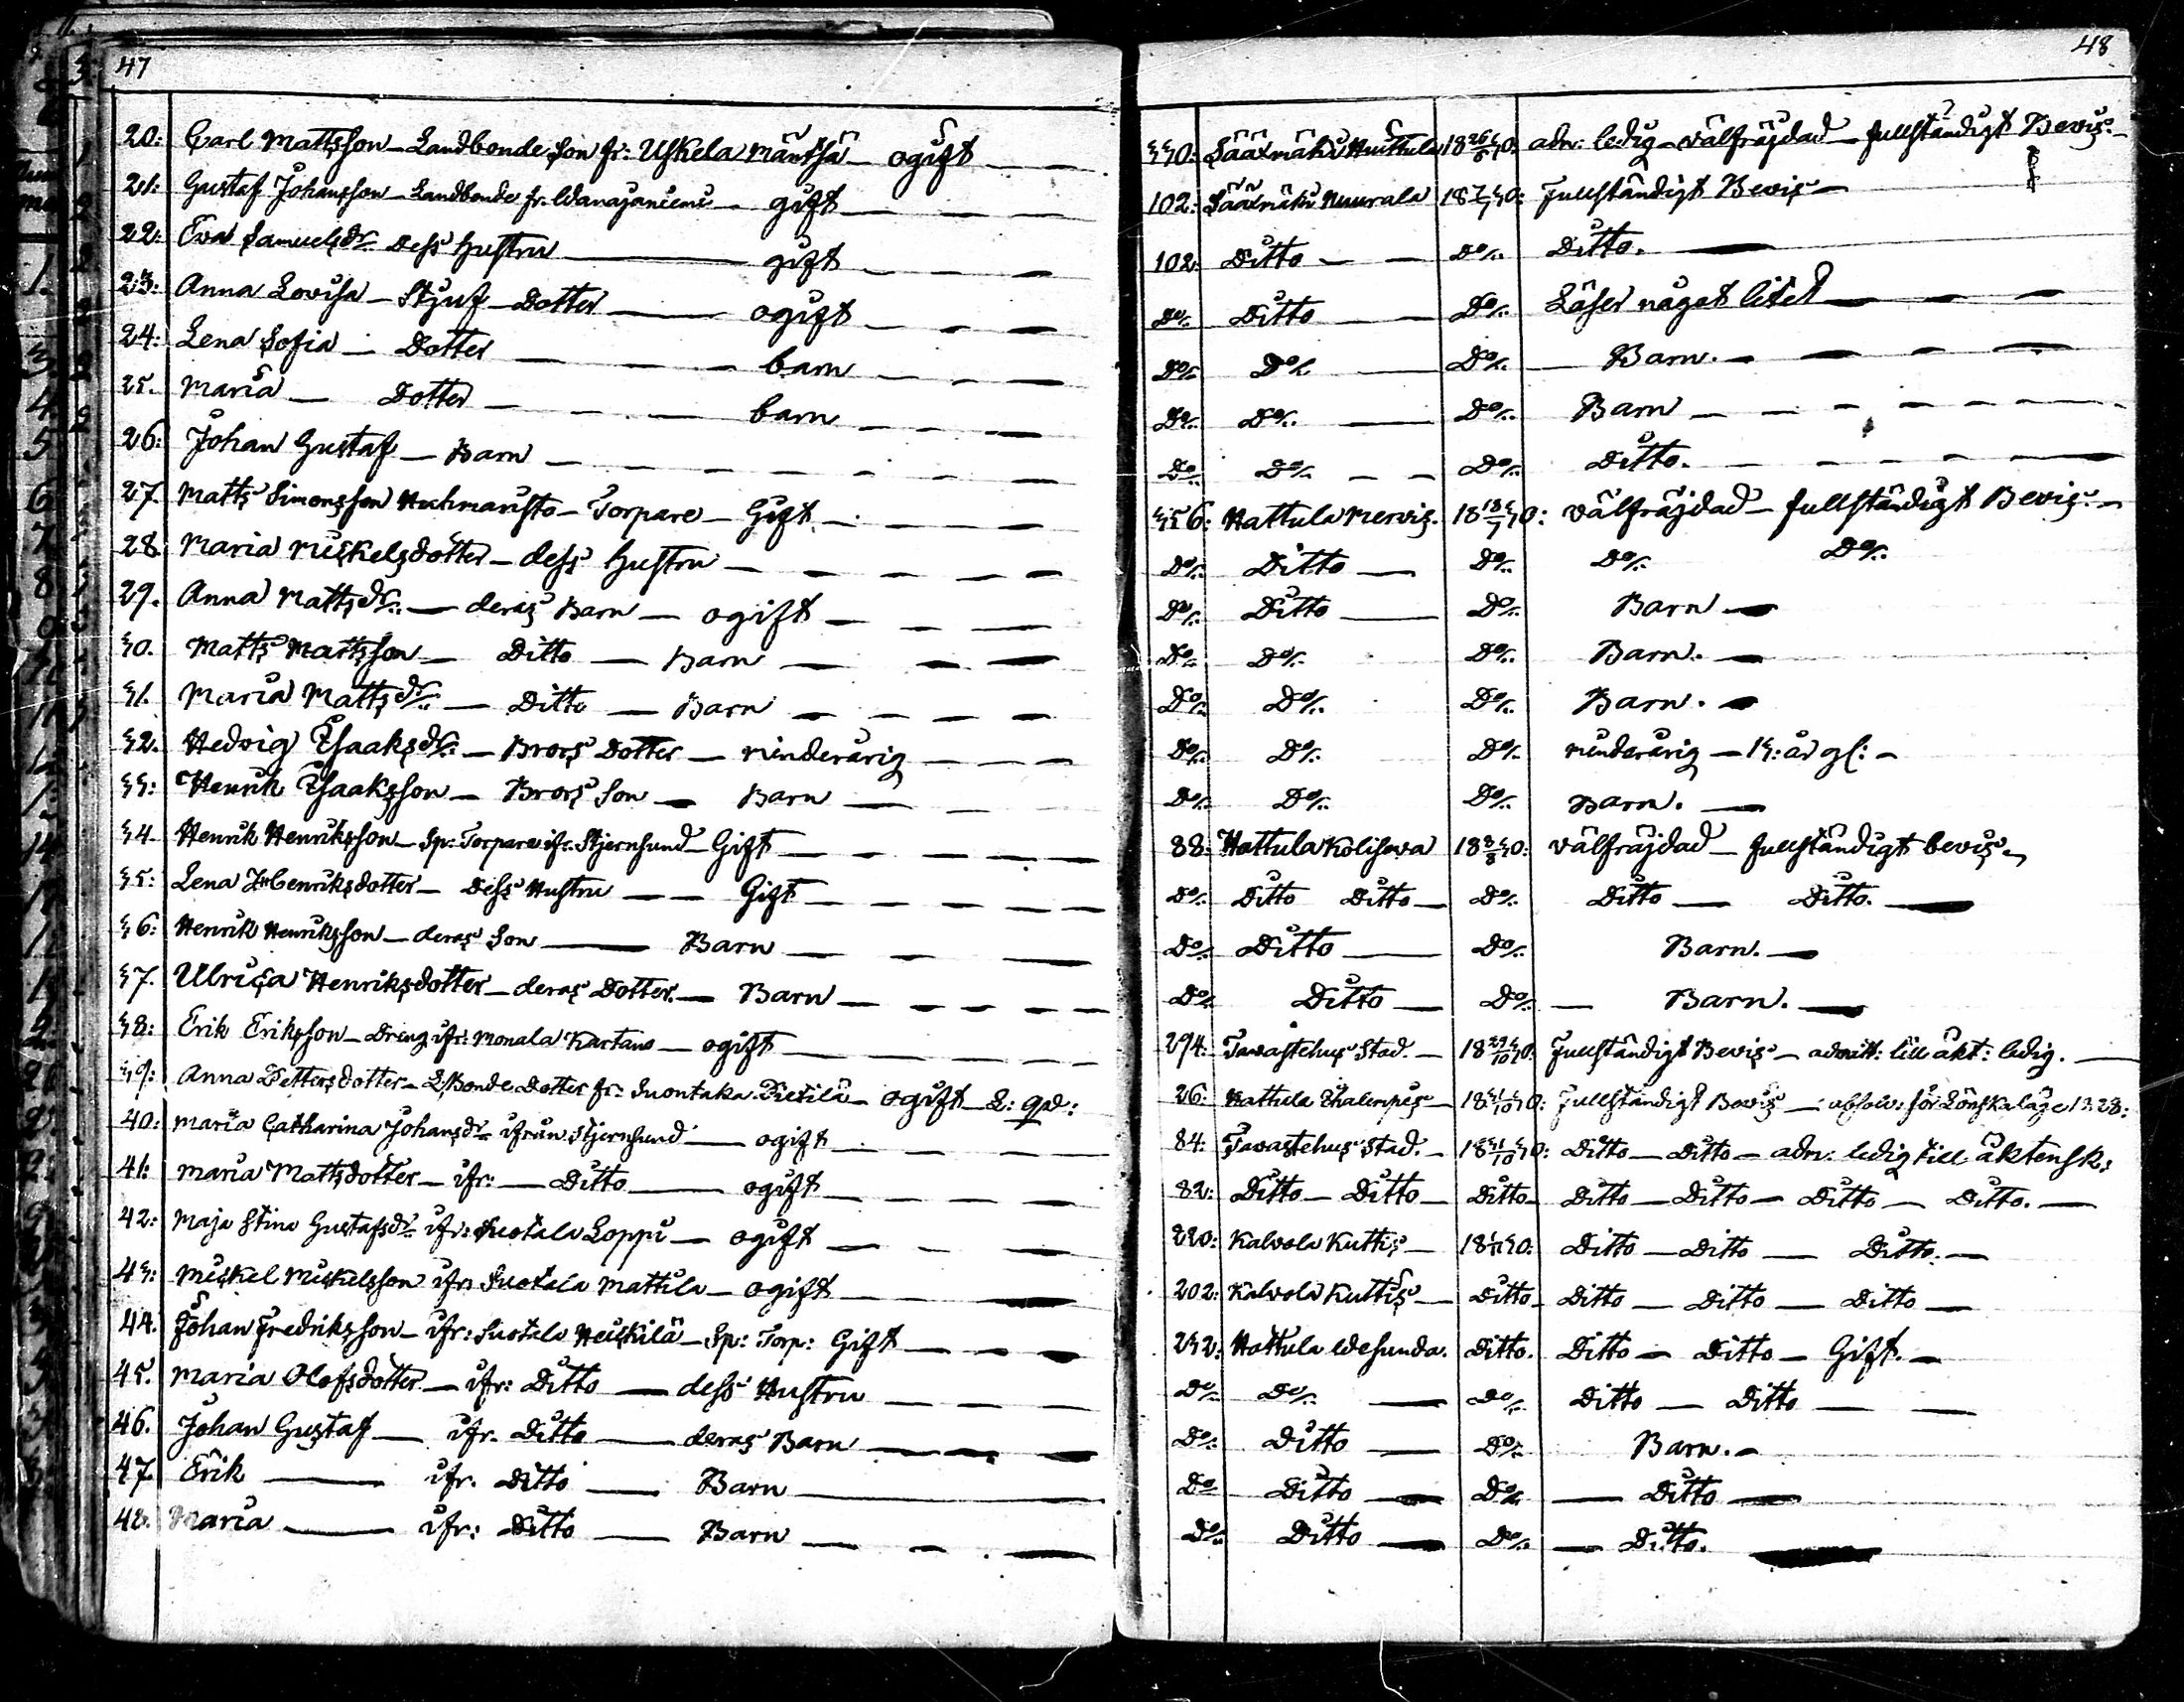 47
20: Carl Mattsson — Landbonde Son fr: Uskela Mäntsä — ogift — —
21: Gustaf Johansson — Landbonde fr. Wanajaniemi — gift — — —
22: Eva Samuelsdr. Dess Hustru — gift — — —
23: Anna Lovisa — Stjuf-Dotter — ogift — — —
24: Lena Sofia — Dotter — — — barn — — —
25. Maria — Dotter — — — barn — — —
26: Johan Gustaf — Barn — — — — — —
27. Matts Simonsson — Torpare — Gift — — —
28. Maria Mickelsdotter — dess Hustru — — — — —
29. Anna Mattsdr. — deras Barn — ogift — — —
30. Matts Mattsson — Ditto — Barn — — —
31. Maria Mattsdr. — Ditto — Barn — — — —
32. Hedvig Isaaksdr. — Brors Dotter — minderårig — — —
33: Henrik Isaaksson — Brors Son — Barn — — —
34. Henrik Henriksson — Sp. Torpare ifr. Stjernsund — Gift — — — —
35: Lena Henriksdotter — Dess Hustru — — Gift — — — — —
36: Henrik Henriksson — deras Son — Barn — — —
37. Ulrica Henriksdotter — deras Dotter. — Barn — — — — —
38: Erik Eriksson — Dreng ifr: Monala Kartano — ogift — — — —
39: Anna Pettersdotter — L:Bonde Dotter fr. Suontaka Pietilä — ogift — L: qd:
40: Maria Catharina Johansdr ifrån Stjernsund — ogift — — — —
41: Maria Mattsdotter — ifr: — Ditto — ogift — — — —
42: Maja Stina Gustafsdr. ifr: Suotala Loppi — ogift — — —
43: Mickel Mickelsson ifr: Suotala Mattila — ogift — — —
44. Johan Fredriksson — ifr: Suotala Heickilä — Sp: Torp: Gift — — —
45. Maria Olofsdotter — ifr: Ditto — dess Hustru — — — —
46. Johan Gustaf — ifr. Ditto — deras Barn — — —
47. Erik — ifr. Ditto — Barn —
48. Maria — ifr: Ditto — Barn — — —
48
330: Sääxmäki Huittula 18 26/6 30: adm: ledig — välfräjdad — fullständigt Bevis. —
102: Sääxmäki Nuurala 18 7/7 30: Fullständigt Bevis —
102: Ditto — — Do. Ditto. —
Do. Ditto — Do. Läser något litet — — —
Do. Do. — Do. — Barn. — — — —
Do. Do. — Do. Barn — — — — —
Do Do. — — Do. Ditto. — — — —
356: Hattula Mervis. 18 13/7 30: välfräjdad — fullständigt Bevis. —
Do. Ditto — Do. Do. Do.
Do. Ditto — Do. Barn —
Do. Do. Do. Barn. —
Do. Do. Do. Barn. —
Do. Do. Do. minderårig — 13: år gl: —
Do. Do. Do. Barn. —
88: Hattula Kolisewa 18 8/8 30: välfräjdad — fullständigt bevis —
Do. Ditto Ditto — Do. Ditto — Ditto. —
Do. Ditto — Do. Barn. —
Do. Ditto — Do. — Barn. —
294: Tavastehus Stad. — 18 29/10 30: Fullständigt Bevis — admitt: till äkt: ledig. —
26: Hattula — 18 31/10 30: Fullständigt Bevis — absolv: för Lönskaläge 1828:
84: Tavastehus Stad. — 18 31/10 30: Ditto — Ditto — adm: ledig till äktensk:
82: Ditto — Ditto — Ditto — Ditto — Ditto — Ditto — Ditto. —
220: Kalvola Kuttis — 18 1/11 30: Ditto — Ditto — Ditto. —
202: Kalvola Kuttis — Ditto — Ditto — Ditto — Ditto —
232: Hattula Wesunda. Ditto. Ditto — Ditto — Gift. —
Do. Do. — Do. Ditto — Ditto — —
Do. Ditto — Do. Barn. —
Do Ditto — Do. — Ditto —
Do. Ditto — Do. — Ditto. —